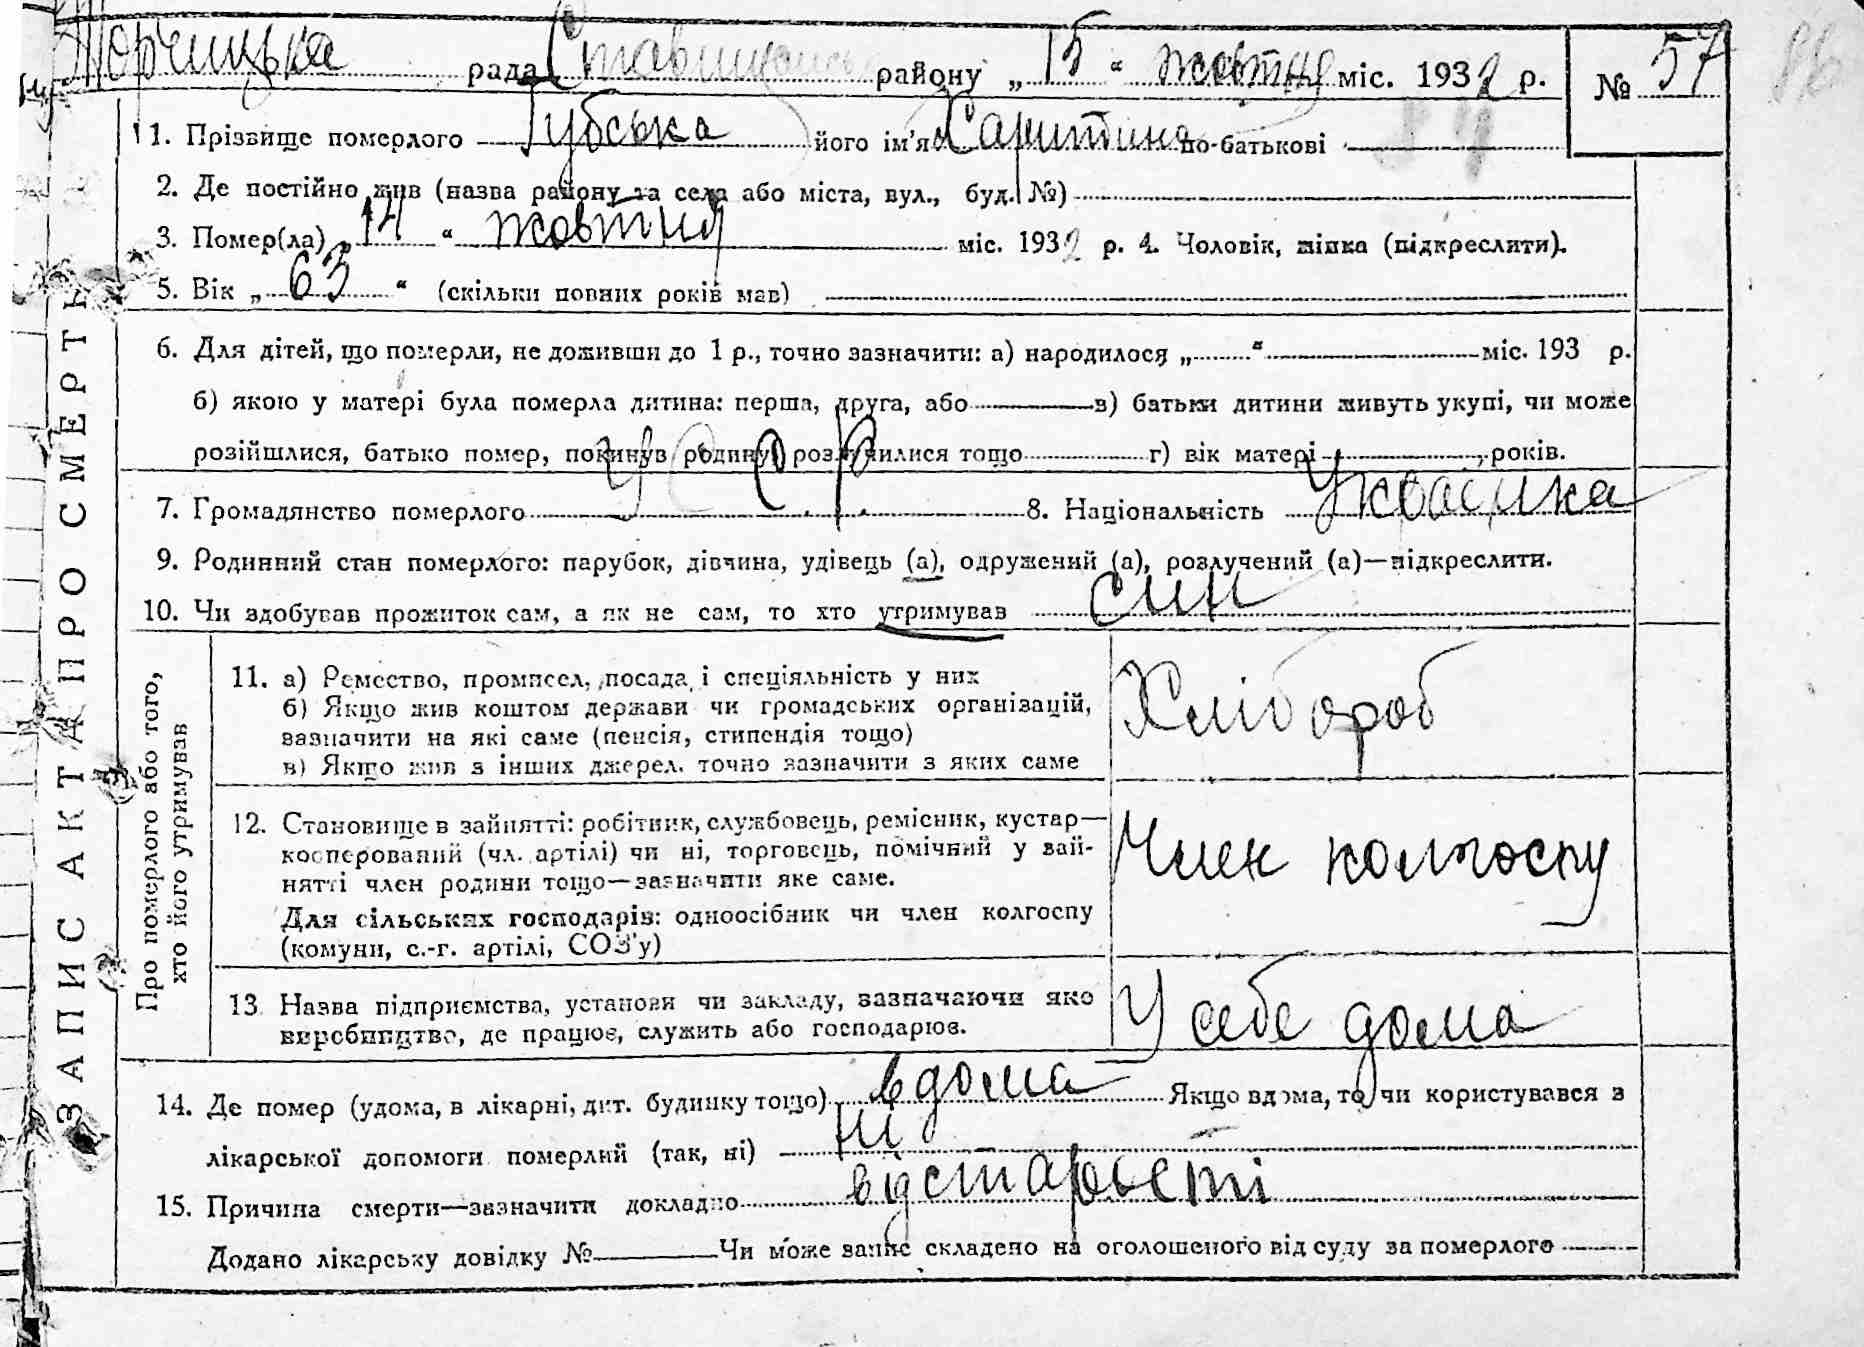 Торчицька рада Ставищанськ району „ 15 “ жовтня міс. 1932 р. № 57
1. Прізвище померлого Губська його ім'я Харитина по-батькові
2. Де постійно жив (назва району та села або міста, вул., буд. №)
3. Помер(ла) „ 14 “ жовтня міс. 1932 р. 4. Чоловік, жінка (підкреслити).
5. Вік „ 63 “ (скільки повних років мав)
6. Для дітей, що померли, не доживши до 1 р., точно зазначити: а) народилося „ “ міс. 193 р.
б) якою у матері була померла дитина: перша, друга, або в) батьки дитини живуть укупі, чи може
розійшлися, батько помер, покинув родину, розлучилися тощо г) вік матері років.
7. Громадянство померлого У С Р Р 8. Національність Українка
9. Родинний стан померлого: парубок, дівчина, удівець (а), одружений (а), розлучений (а)—підкреслити.
10. Чи здобував прожиток сам, а як не сам, то хто утримував син
ЗАПИС АКТА ПРО СМЕРТЬ
Про померлого або того,
хто його утримував
11. а) Ремество, промисел, посада і спеціяльність у них
б) Якщо жив коштом держави чи громадських організацій,
зазначити на які саме (пенсія, стипендія тощо)
в) Якщо жив з інших джерел, точно зазначити з яких саме
Хлібороб
12. Становище в зайнятті: робітник, службовець, ремісник, кустар—
кооперований (чл. артілі) чи ні, торговець, помічний у зай-
нятті член родини тощо—зазначити яке саме.
Для сільських господарів: одноосібник чи член колгоспу
(комуни, с.-г. артілі, СОЗ'у)
Член колгоспу
13. Назва підприємства, установи чи закладу, зазначаючи яко
виробництво, де працює, служить або господарює.
У себе дома
14. Де помер (удома, в лікарні, дит. будинку тощо) вдома Якщо вдома, то чи користувався з
лікарської допомоги померлий (так, ні) ні
15. Причина смерти—зазначити докладно від старости
Додано лікарську довідку № Чи може запис складено на оголошеного від суду за померлого